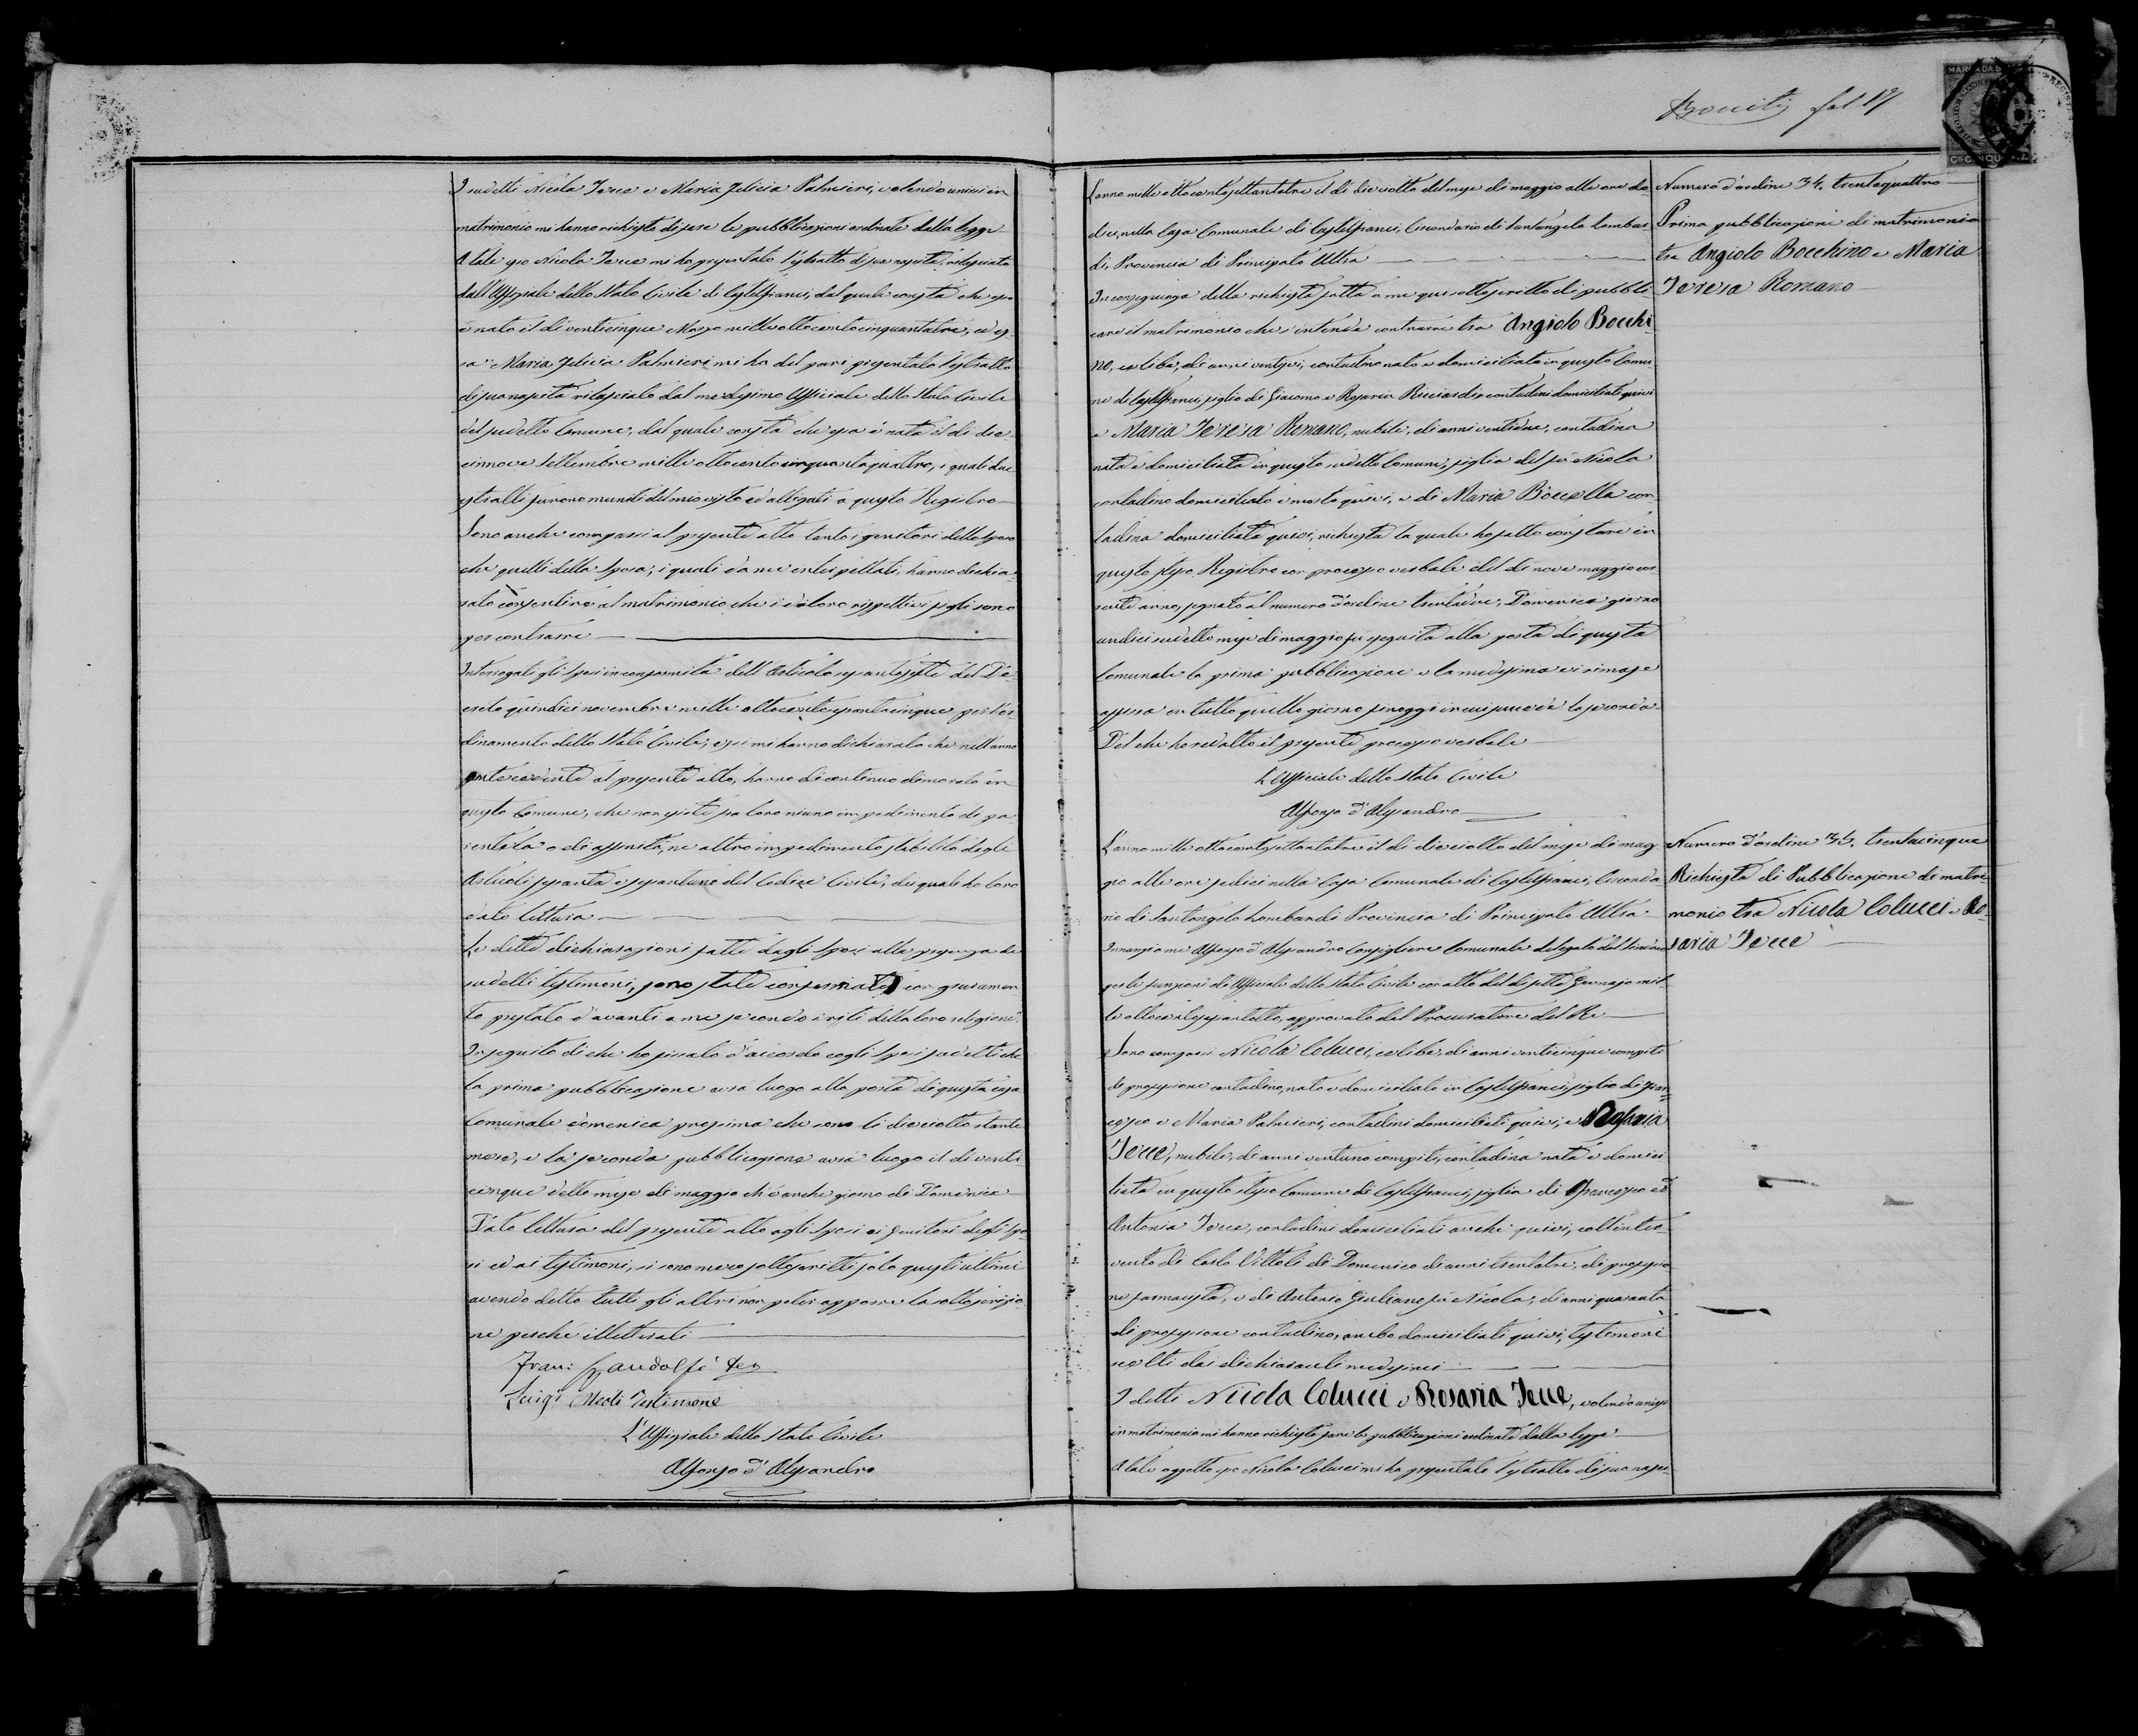 I sudetti Nicola Tecce e Maria Felicia Palmieri, volendo unirsi in
matrimonio mi hanno richiesto di fare le pubblicazioni ordinate dalla legge
A tale esso Nicola Tecce mi ha presentato l'estratto di sua nascita, rilasciato
dall'Uffiziale dello Stato Civile di Castelfranci, dal quale consta che esso
è nato il dì venticinque Marzo mille ottocento cinquantatre, ed es-
sa Maria Felicia Palmieri mi ha del pari presentato l'estratto
di sua nascita rilasciato dal medesimo Ufficiale dello Stato Civile
del sudetto Comune, dal quale consta che essa è nata il dì die-
cinnove Settembre mille ottocento cinquantaquattro, i quali due
estratti furono muniti del mio visto ed alligati a questo Registro
Sono anche comparsi al presente atto tanto i genitori dello sposo
che quelli della sposa, i quali da me interpellati, hanno dichia-
rato consentire al matrimonio che i di loro rispettivi figli sono
per contrarre
Interrogati gli sposi in conformità dell'Articolo sessantasette del De-
creto quindici novembre mille ottocento sessantacinque per l'or-
dinamento dello Stato Civile, essi mi hanno dichiarato che nell'anno
antecedente al presente atto, hanno di continuo dimorato in
questo Comune, che non esiste fra loro niuno impedimento di pa-
rentela o di affinità, nè altro impedimento stabilito dagli
Articoli sessanta e sessantuno del Codice Civile, dei quali do loro
dato lettura
Le dette dichiarazioni fatte dagli sposi alla presenza de'
sudetti testimoni, sono state confermate con giuramen-
to prestato d'avanti a me secondo i riti della loro religione
In seguito di che ho fissato d'accordo cogli sposi sudetti che
la prima pubblicazione avrà luogo alla porta di questa casa
Comunale domenica prossima che sono li dieciotto stante
mese, e la seconda pubblicazione avrà luogo il dì venti-
cinque detto mese di maggio ch'è anche giorno di Domenica
Dato lettura del presente atto agli sposi ai Genitori degli spo-
si ed ai testimoni, si sono meco sottoscritti solo questi ultimi
avendo detto tutti gli altri non poter apporre la sottoscrizio-
ne perchè illetterati
Fran: Gandolfi Tes
Luigi Meoli Testimone
L'Uffiziale dello Stato Civile
Alfonso d'Alessandro
L'anno mille ottocento settantatre il dì dieciotto del mese di maggio alle ore do-
dici, nella Casa Comunale di Castelfranci, Circondario di Santangelo Lombar-
di, Provincia di Principato Ultra
In conseguenza della richiesta fatta a me qui sottoscritto di pubbli-
care il matrimonio che s'intende contrarre tra Angiolo Bocchi-
no, celibe, di anni ventisei, contadino nato e domiciliato in questo Comu-
ne di Castelfranci figlio di Giacomo e Rosaria Ricciardi, contadini domiciliati quivi
e Maria Teresa Romano, nubile, di anni ventidue, contadina
nata e domiciliata in questo sudetto Comune, figlia del fù Nicola
contadino domiciliato e morto quivi, e di Maria Boccella con-
tadina domiciliata quivi, richiesta la quale ho fatto constare in
questo stesso Registro con processo verbale del dì nove maggio cor-
rente anno, segnato al numero d'ordine trentadue, Domenica giorno
undici sudetto mese di maggio fu eseguita alla porta di questa
Comunale la prima pubblicazione e la medesima vi rimase
affissa in tutto quello giorno, fin oggi in cui succede la seconda
Del che ho redatto il presente processo verbale
L'Ufficiale dello Stato Civile
Alfonso d'Alessandro
L'anno mille ottocento settantatre il dì dieciotto del mese di mag-
gio alle ore sedici nella Casa Comunale di Castelfranci, Circonda-
rio di Santangelo Lombardi Provincia di Principato Ultra
Innanzi a me Alfonso d'Alessandro Consigliere Comunale delegato dal Sindaco
per le funzioni di Ufficiale dello Stato Civile con atto del dì sette Gennajo mil-
le ottocento sessantotto, approvato dal Procuratore del Re
Sono comparsi Nicola Colucci, celibe, di anni venticinque compiti
di professione contadino, nato e domiciliato in Castelfranci figlio di Fran-
cesco e Maria Palmieri, contadini domiciliati quivi, e Rosaria
Tecce, nubile, di anni ventuno compiti, contadina nata e domici-
liata in questo stesso Comune di Castelfranci, figlia di Francesco ed
Antonia Tecce, contadini domiciliati anche quivi, coll'inter-
vento di Carlo Vittoli di Domenico di anni trentatre, di professio-
ne farmacista, e di Antonio Giuliano fù Nicola, di anni quaranta
di professione contadino, ambo domiciliati quivi, testimoni
scelti dai dichiaranti medesimi
I detti Nicola Colucci e Rosaria Tecce, volendo unirsi
in matrimonio mi hanno richiesto fare le pubblicazioni ordinate dalla legge
A tale oggetto esso Nicola Colucci mi ha presentato l'estratto di sua nasci-
fol 17
MARCA DA B
Numero d'ordine 34. trentaquattro
Prima pubblicazione di matrimonio
tra Angiolo Bocchino e Maria
Teresa Romano
Numero d'ordine 35. trentacinque
Richiesta di Pubblicazione di matri-
monio tra Nicola Colucci e Ro-
saria Tecce